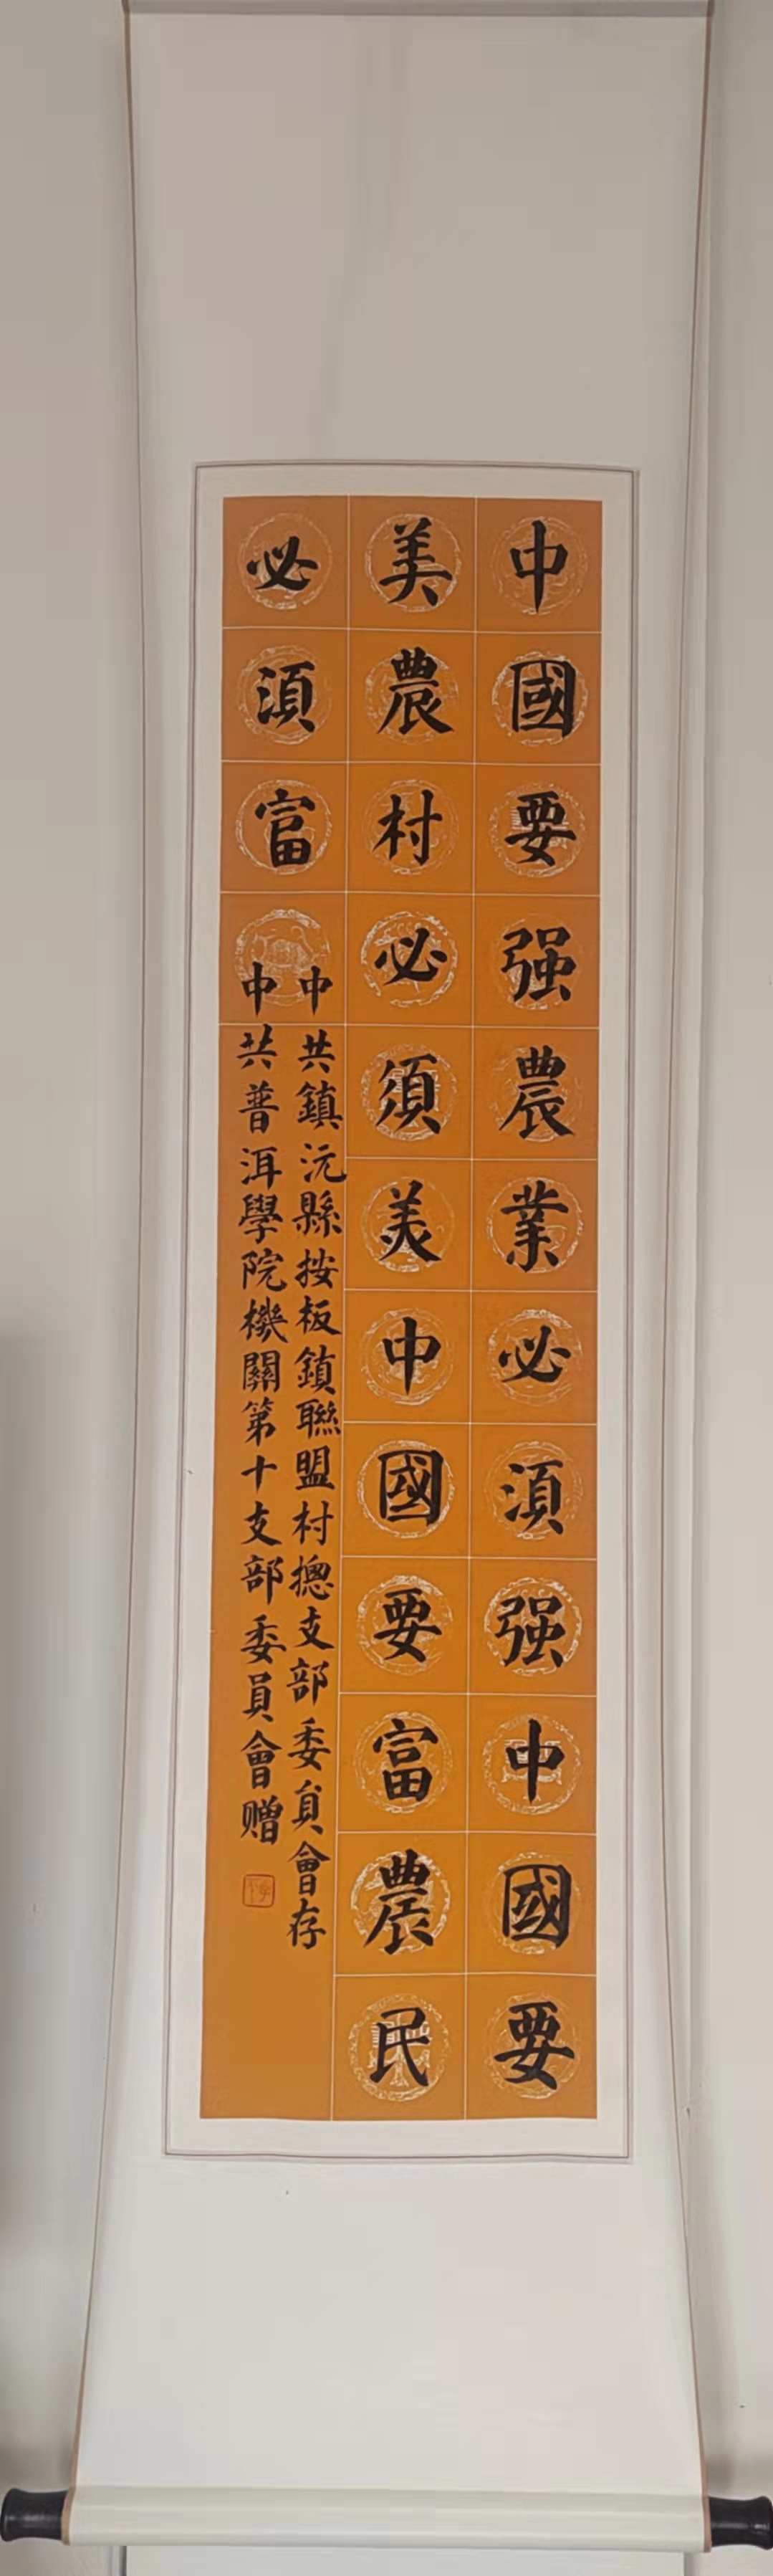 中國要强農業必湏强中國要
美農村必須美中國要富農民
必湏富
中共鎮沅縣按板鎮聯盟村摠支部委員會存
中共普洱學院機關第十支部委員會赠